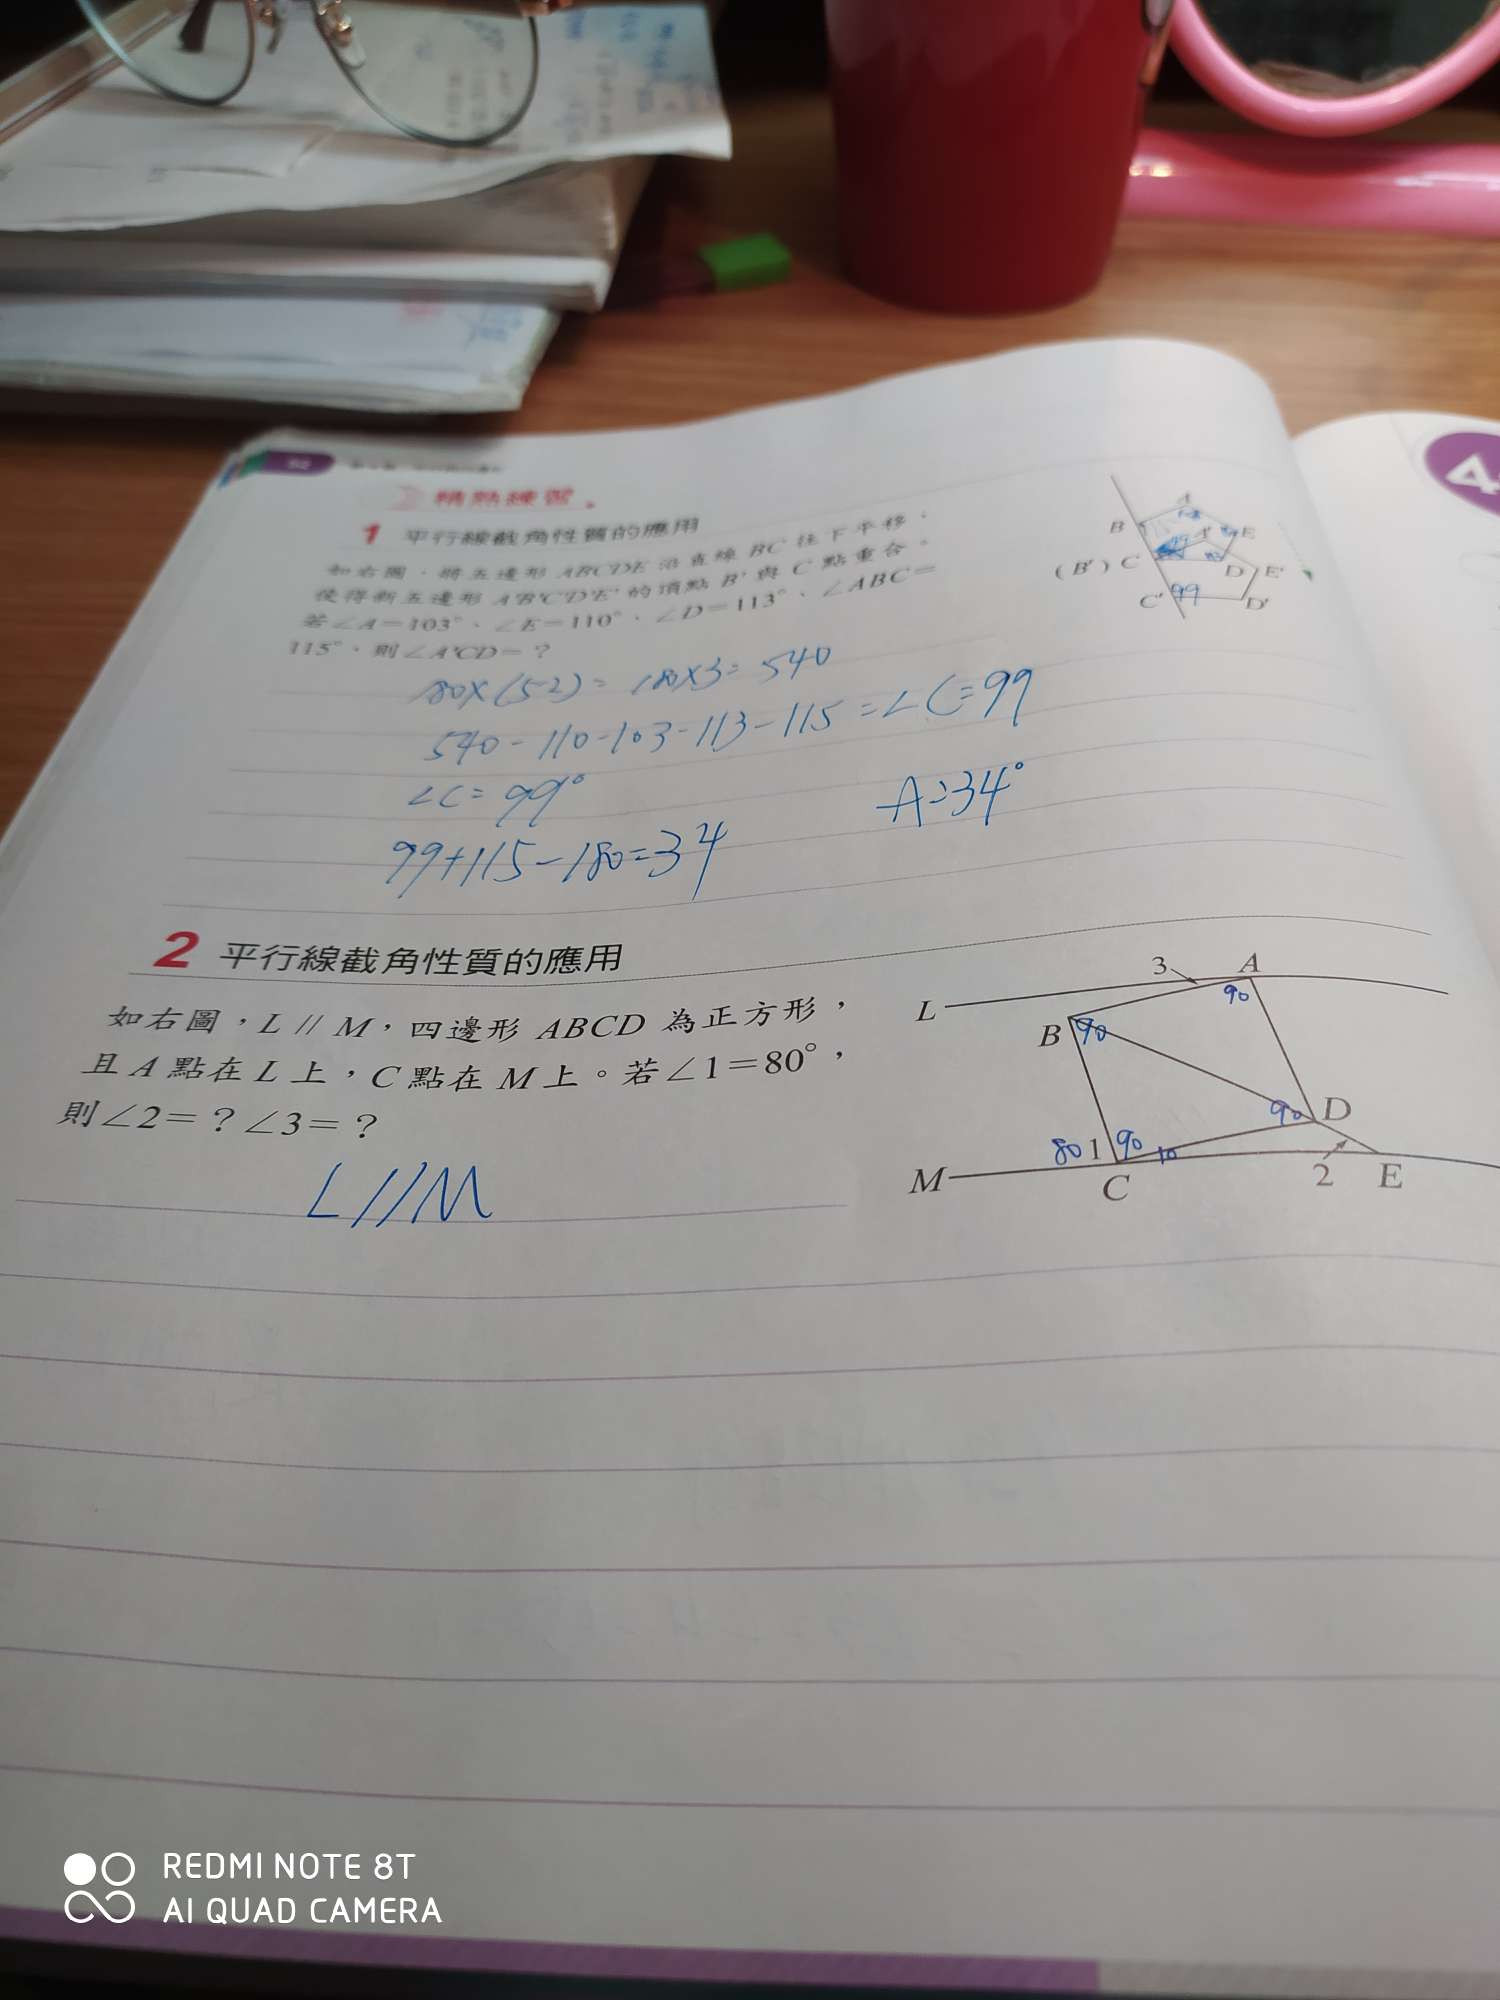 52
精熟練習
1 平行線截角性質的應用
如右圖，將五邊形 ABCDE 沿直線 BC 往下平移，
使得新五邊形 A'B'C'D'E' 的頂點 B' 與 C 點重合。
若∠A=103°、∠E=110°、∠D=113°、∠ABC=
115°，則∠A'CD=?
A
B
A'
E
(B') C
D
E'
C'
99
D'
180×(5-2)=180×3=540
540-110-103-113-115=∠C=99
∠C=99°
A=34°
99+115-180=34
2 平行線截角性質的應用
如右圖，L // M，四邊形 ABCD 為正方形，
且 A 點在 L 上，C 點在 M 上。若∠1=80°，
則∠2=?∠3=?
L//M
3
A
L
90
B
90
90
D
80
1
90
10
M
C
2
E
4
REDMI NOTE 8T
AI QUAD CAMERA